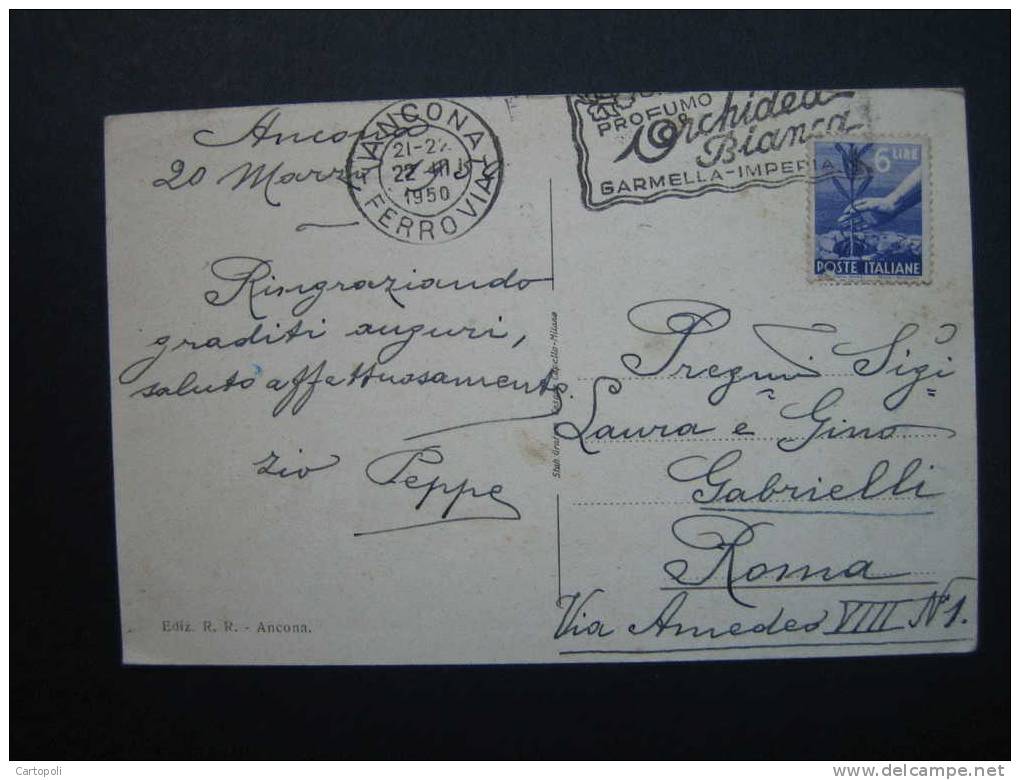 Ancona
20 Marzo
ANCONA
21-22
22 III
1950
FERROVIA
PROFUMO
Orchidea
Bianca
GARMELLA-IMPERIA
6 LIRE
POSTE ITALIANE
Ringraziando
graditi auguri,
saluto affettuosamente.
zio Peppe
Ediz. R. R. - Ancona.
Milano
Pregmi Sigi
Laura e Gino
Gabrielli
Roma
Via Amedeo VIII N 1.
Cartopoli
delcampe.net